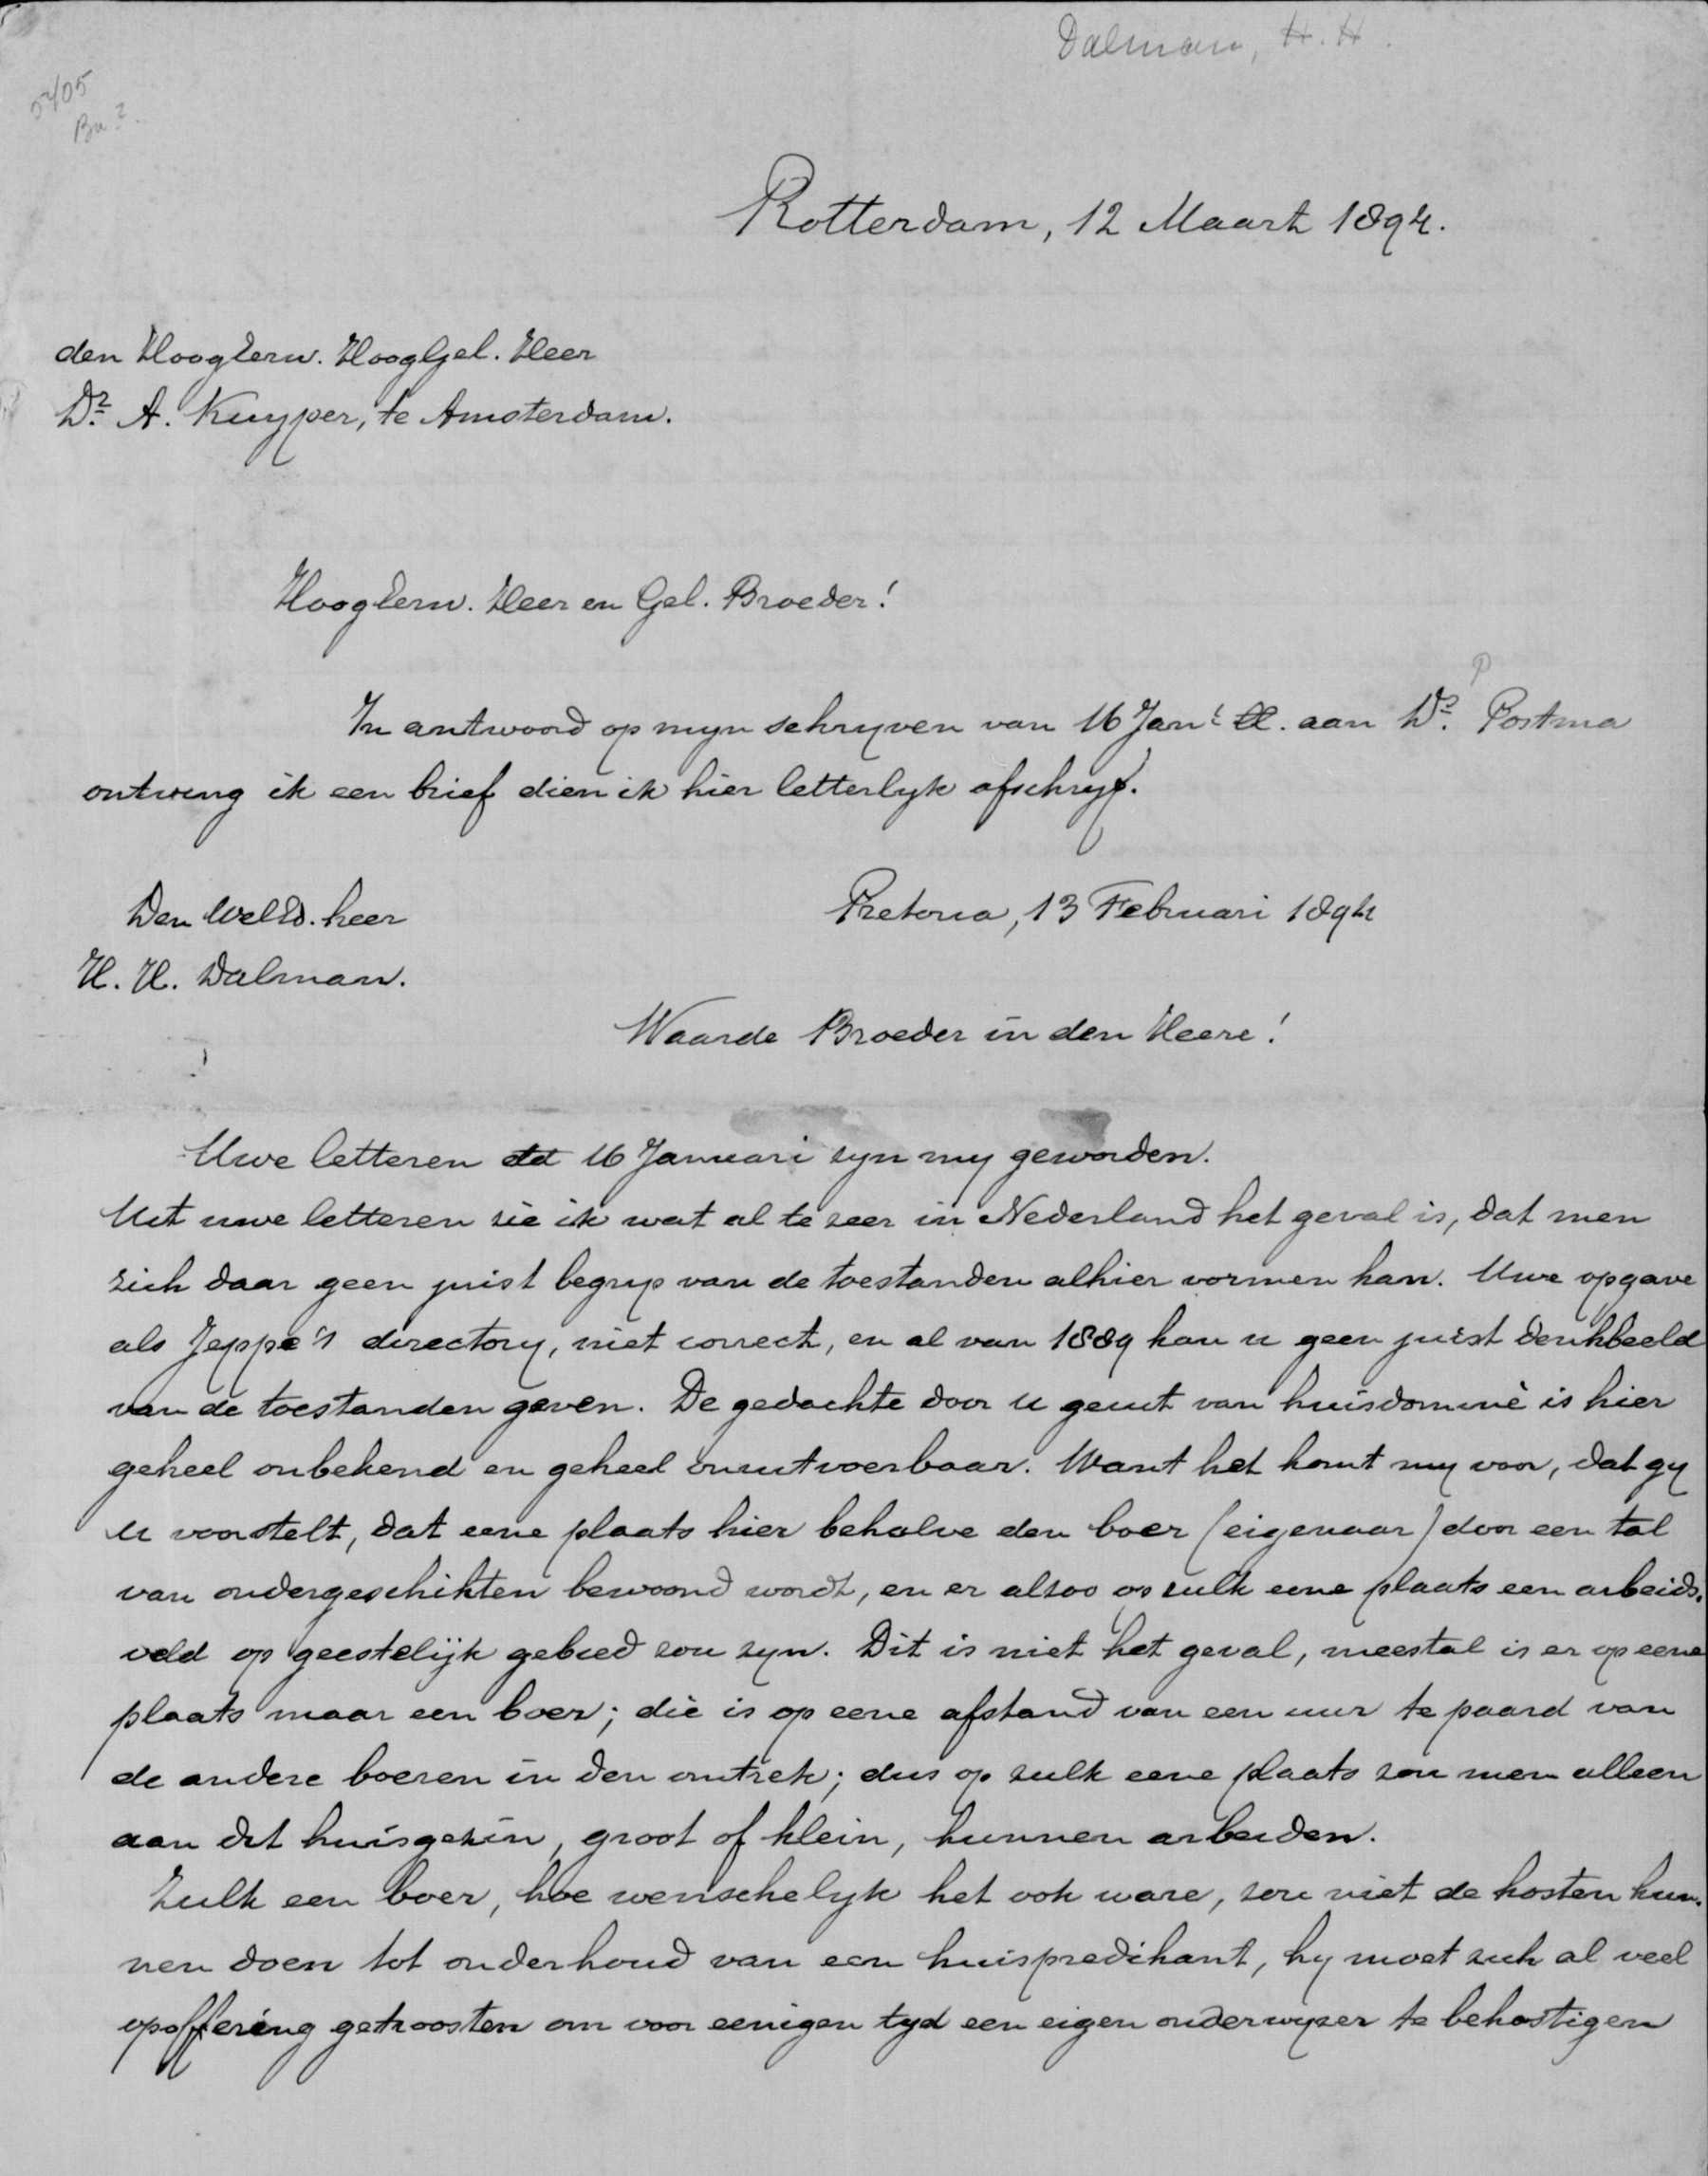 Dalman, H. H.
5405
Rotterdam, 12 Maart 1894.
den HoogEerw. HoogGel. Heer
Dr. A. Kuyper, te Amsterdam.
HoogEerw. Heer en Gel. Broeder!
In antwoord op myn schryven van 16 Jan. ll. aan Ds. Postma
ontving ik een brief dien ik hier letterlyk afschryf.
Den WelEd. heer
Pretoria, 13 Februari 1894
H. H. Dalman.
Waarde Broeder in den Heere!
Uwe letteren dd 16 Januari zyn my geworden.
Uit uwe letteren zie ik wat al te zeer in Nederland het geval is, dat men
zich daar geen juist begrip van de toestanden alhier vormen kan. Uwe opgave
als Jeppe's directory, niet correct, en al van 1889 kan u geen juist denkbeeld
van de toestanden geven. De gedachte door u geuit van huisdominé is hier
geheel onbekend en geheel onuitvoerbaar. Want het komt my voor, dat gy
u voorstelt, dat eene plaats hier behalve den boer (eigenaar) door een tal
van ondergeschikten bewoond wordt, en er alzoo op zulk eene plaats een arbeids-
veld op geestelijk gebied zou zyn. Dit is niet het geval, meestal is er op eene
plaats maar een boer; die is op eene afstand van een uur te paard van
de andere boeren in den omtrek; dus op zulk eene plaats zou men alleen
aan dit huisgezin, groot of klein, kunnen arbeiden.
Zulk een boer, hoe wenschelyk het ook ware, zou niet de kosten kun-
nen doen tot onderhoud van een huispredikant, hy moet zich al veel
opoffering getroosten om voor eenigen tyd een eigen onderwyzer te bekostigen